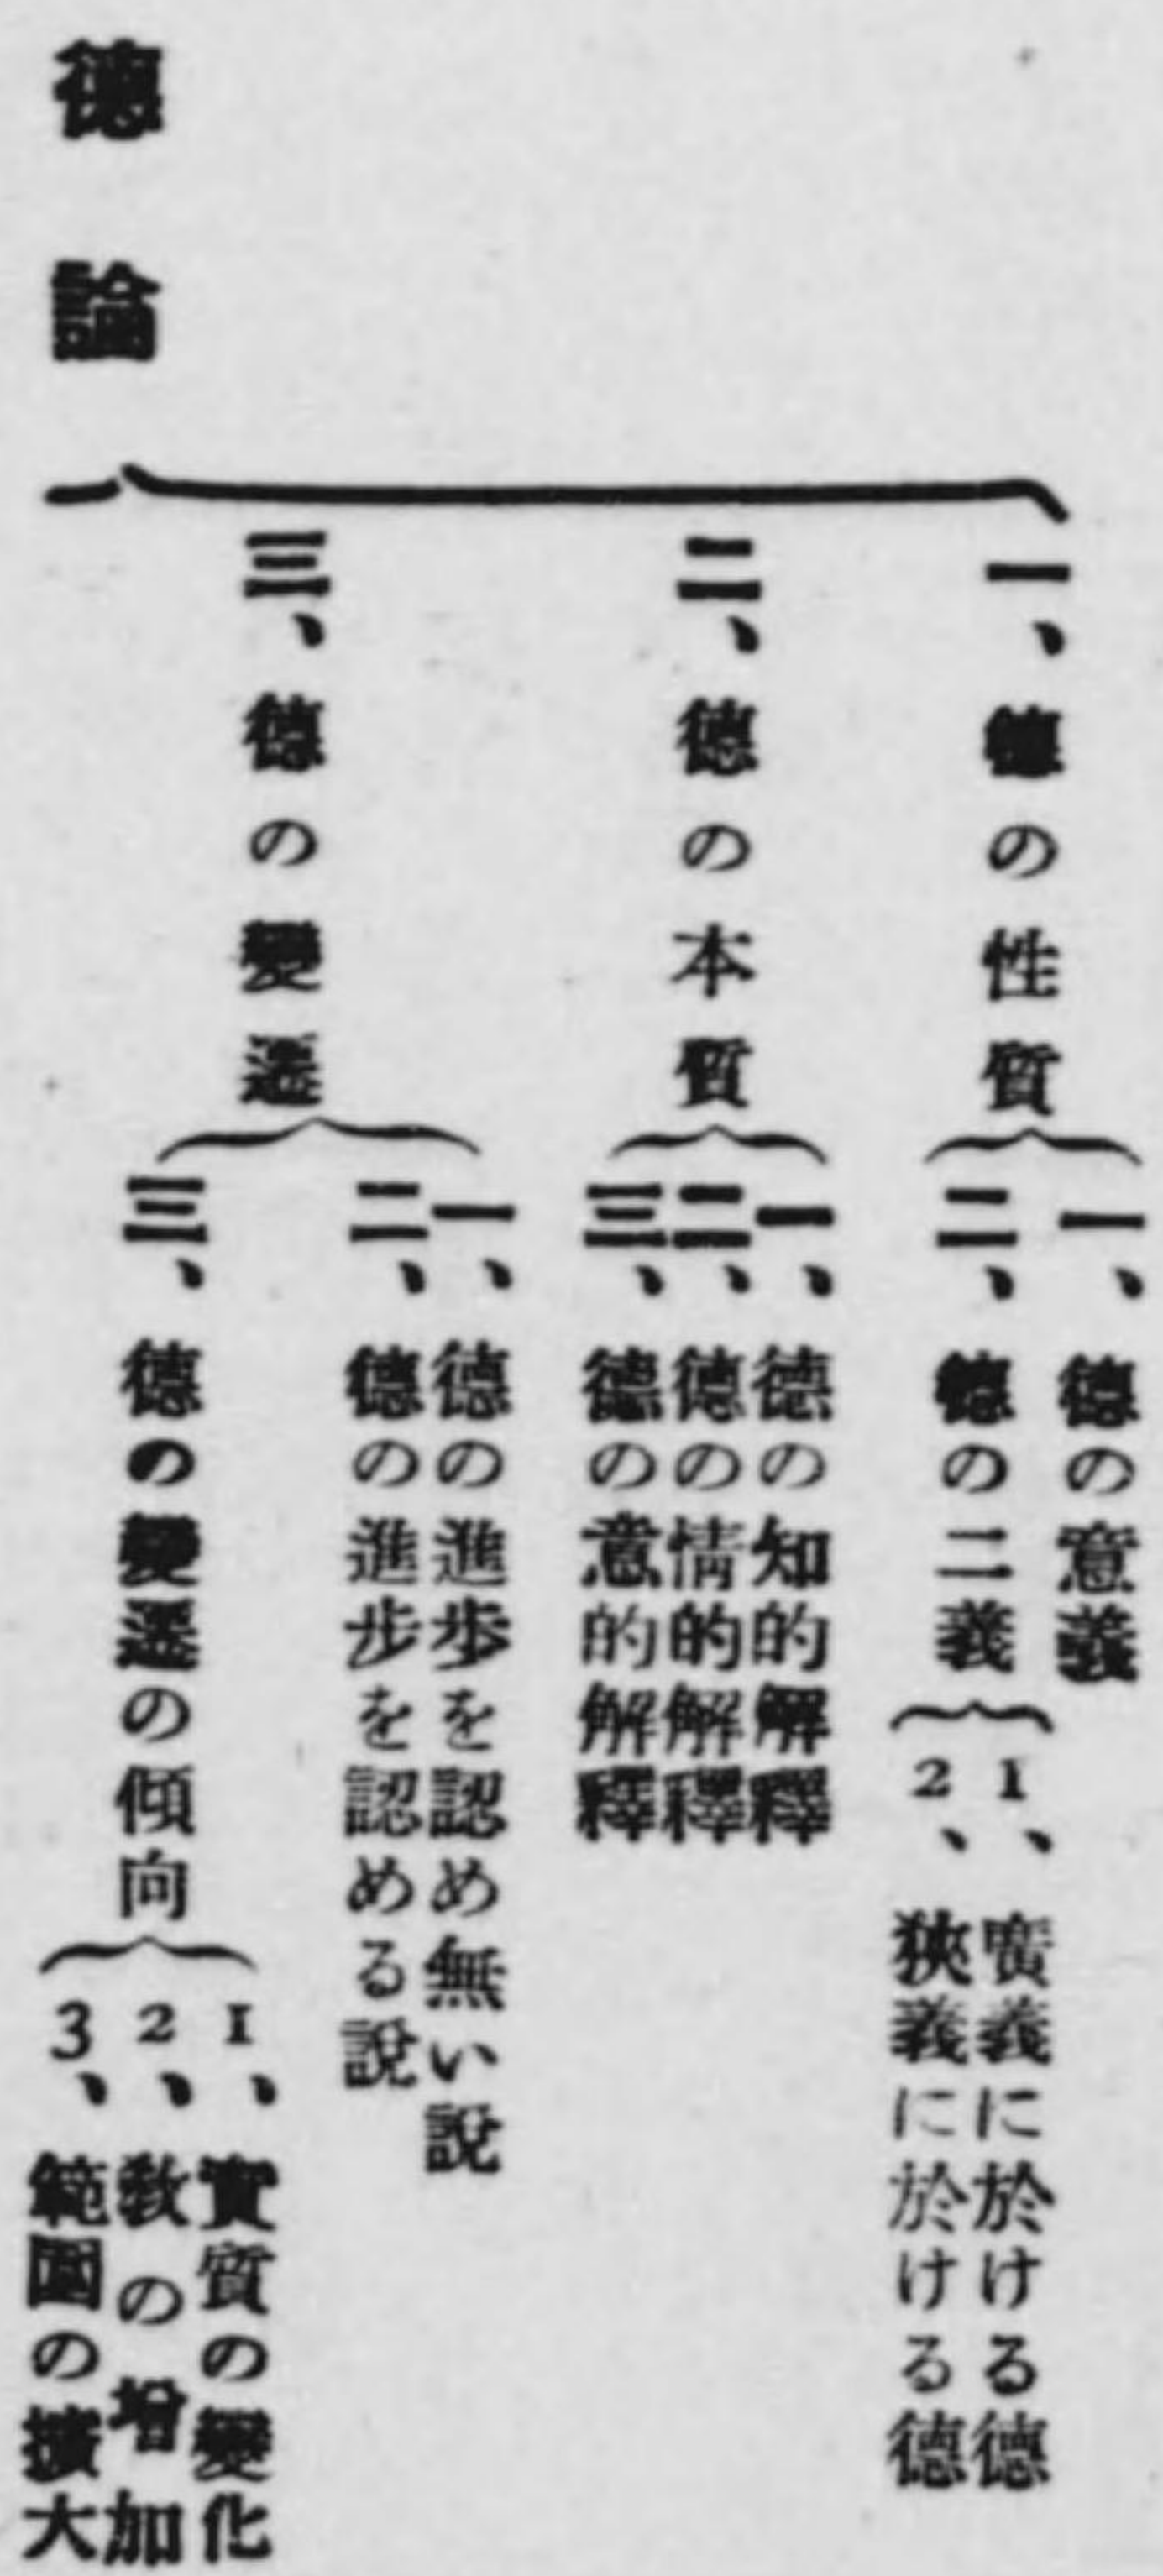 德論
一、德の性質
一、德の意義
二、德の二義
1、廣義に於ける德
2、狹義に於ける德
二、德の本質
一、德の知的解釋
二、德の情的解釋
三、德の意的解釋
三、德の變遷
一、德の進歩を認め無い説
二、德の進步を認める説
三、德の變遷の傾向
1、實質の變化
2、數の增加
3、範圍の擴大